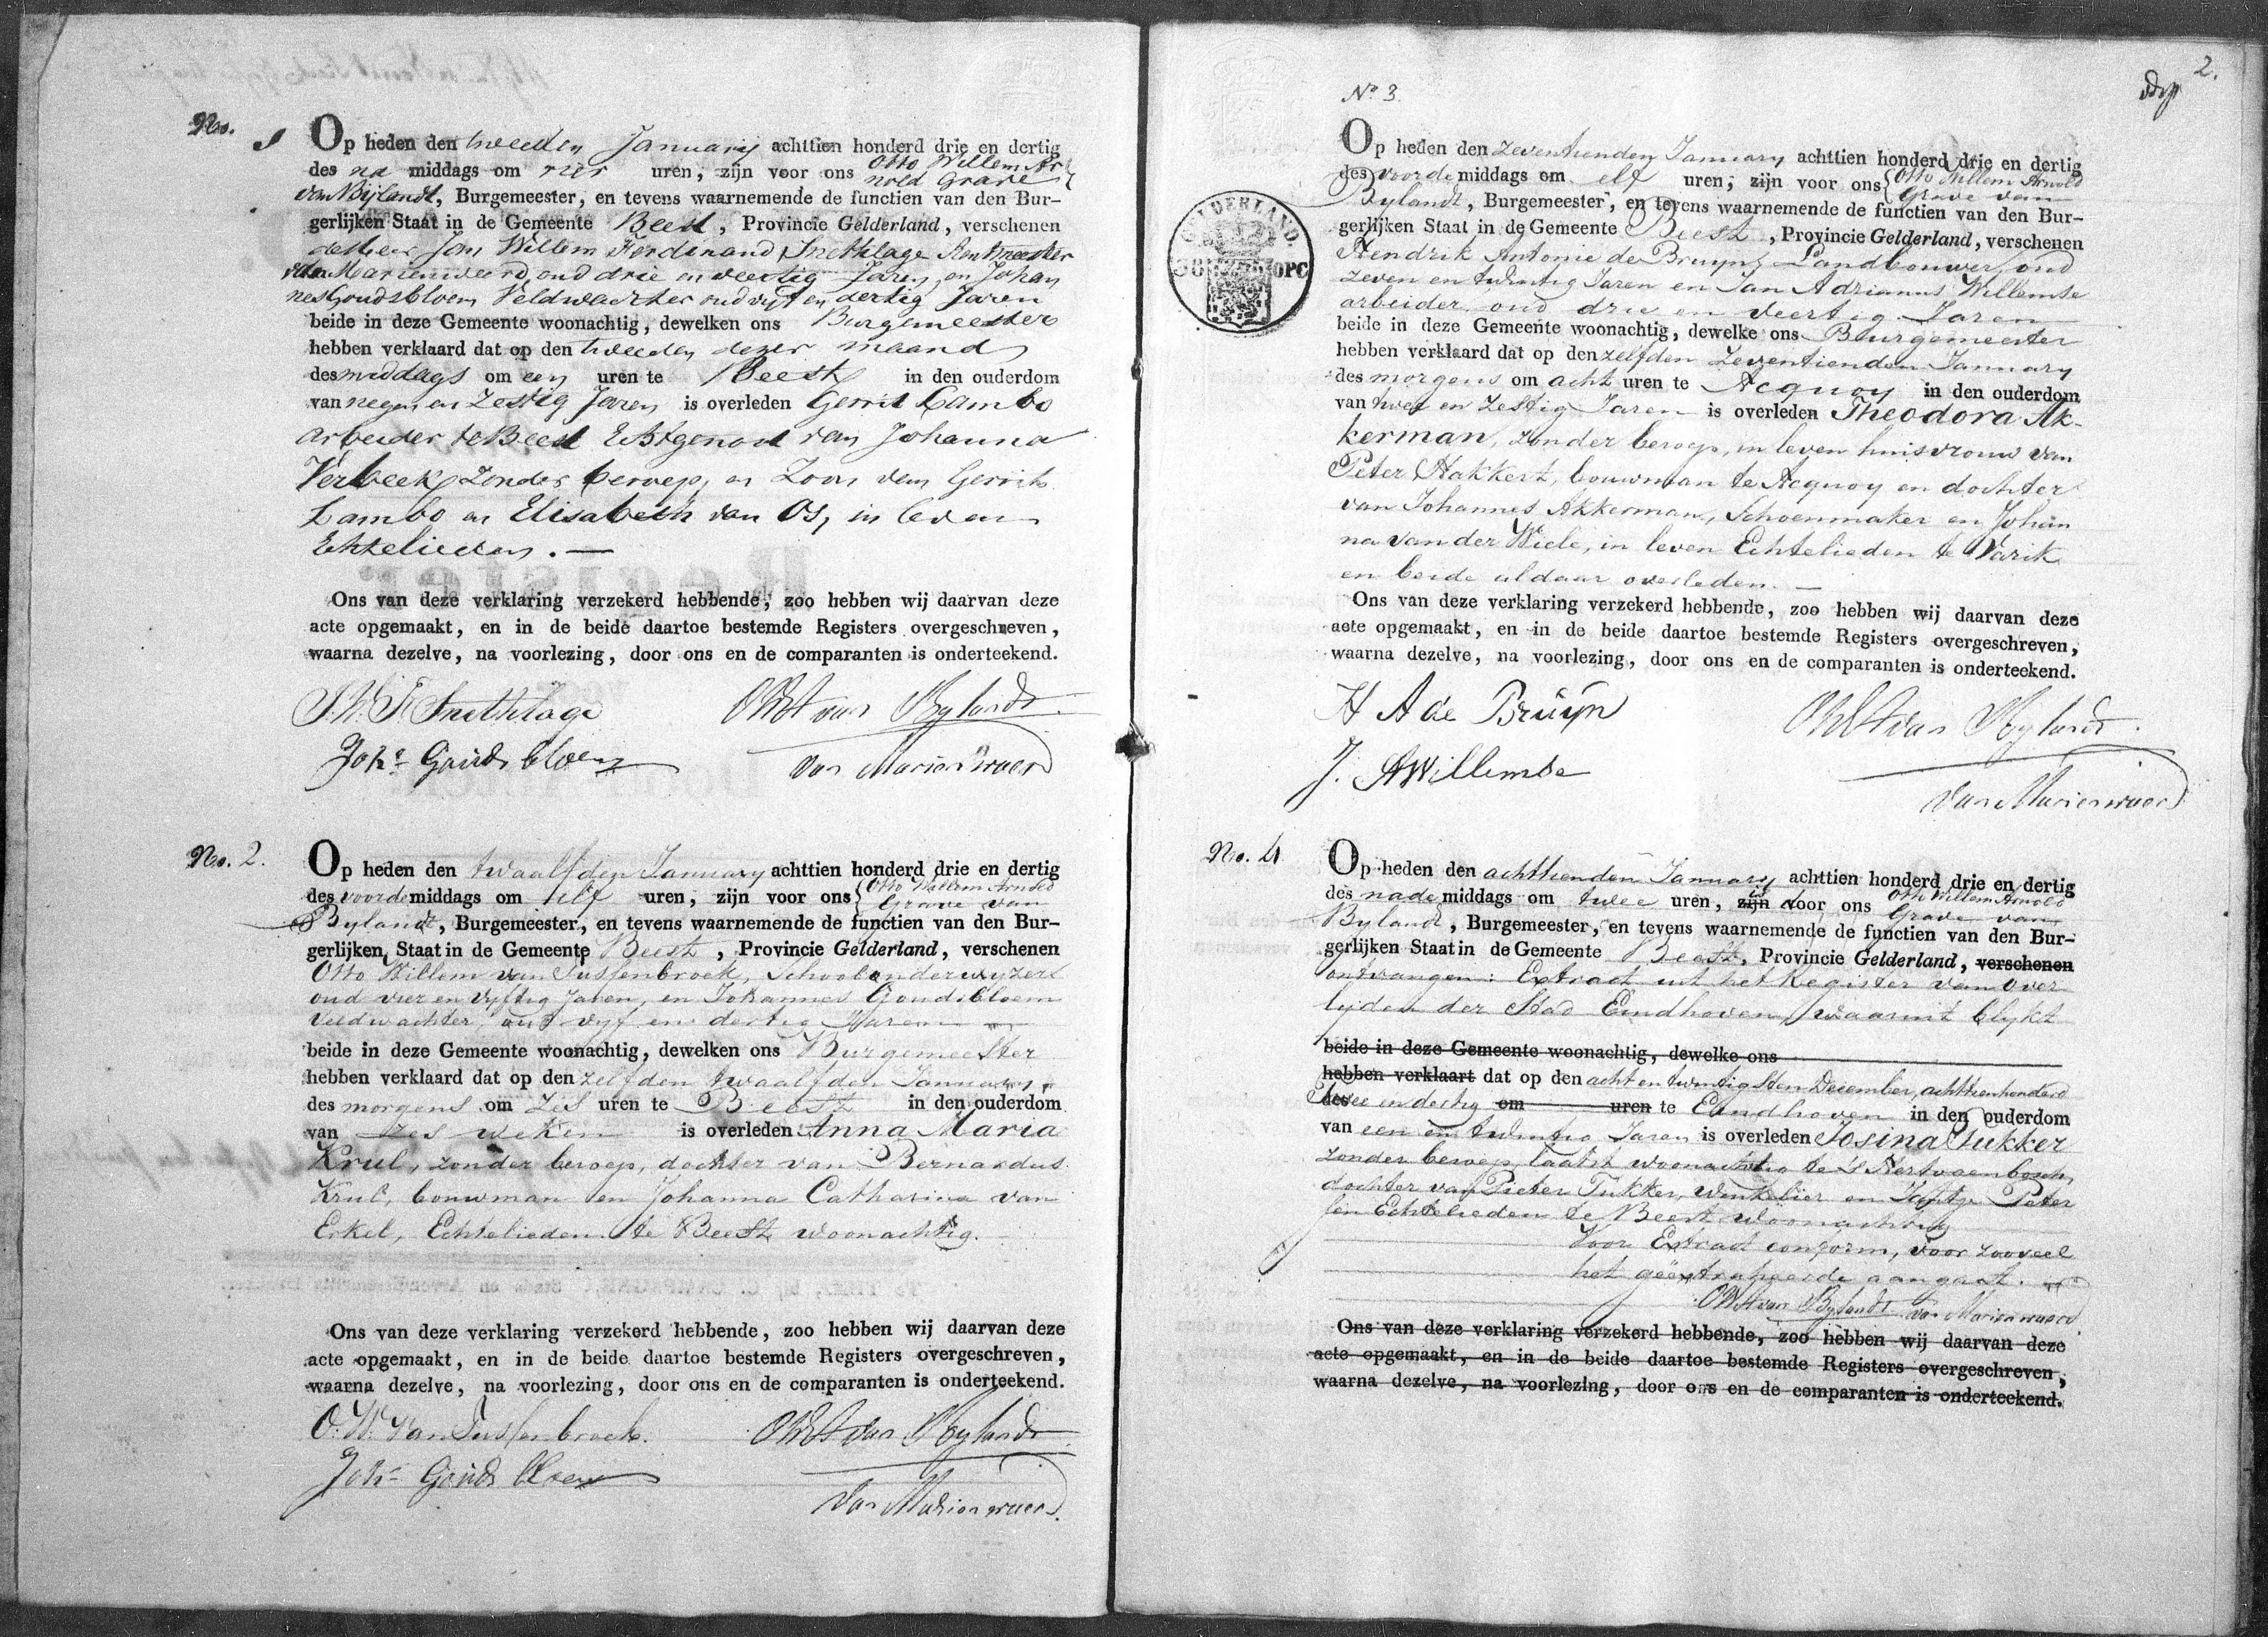 No. 1
Op heden den tweeden January achttien honderd drie en dertig
des na middags om vier uren, zijn voor ons Otto Willem Ar
nold Grave
van Bijlandt, Burgemeester, en tevens waarnemende de functien van den Bur-
gerlijken Staat in de Gemeente Beest, Provincie Gelderland, verschenen
de Heer Jan Willem Ferdinand Snethlage Rentmeester
van Marienweerd, oud drie en veertig Jaren, en Johan
nes Goudsbloem Veldwachter oud vijf en dertig Jaren
beide in deze Gemeente woonachtig, dewelken ons Burgemeester
hebben verklaard dat op den tweeden dezer maand
des middags om een uren te Beest in den ouderdom
van negen en zestig Jaren is overleden Gerrit Lambo
arbeider te Beest Echtgenoot van Johanna
Verbeek, zonder beroep, en Zoon van Gerrit
Lambo en Elisabeth van Os, in leven
Echtelieden. —
Ons van deze verklaring verzekerd hebbende, zoo hebben wij daarvan deze
acte opgemaakt, en in de beide daartoe bestemde Registers overgeschreven,
waarna dezelve, na voorlezing, door ons en de comparanten is onderteekend.
J. W. F. Snethlage OWA van Bylandt
Johs Goudsbloem van Marienwaerd
No. 2.
Op heden den twaalfden January achttien honderd drie en dertig
des voorde middags om elf uren, zijn voor ons Otto Willem Arnold
Grave van
Bylandt, Burgemeester, en tevens waarnemende de functien van den Bur-
gerlijken Staat in de Gemeente Beest, Provincie Gelderland, verschenen
Otto Willem van Tussenbroek, Schoolonderwyzer
oud vier en vyftig Jaren, en Johannes Goudsbloem
Veldwachter, oud vyf en dertig Jaren
beide in deze Gemeente woonachtig, dewelken ons Burgemeester
hebben verklaard dat op den zelfden twaalfden January
des morgens om zes uren te Beest in den ouderdom
van zes weken is overleden Anna Maria
Krul, zonder beroep, dochter van Bernardus
Krul, bouwman en Johanna Catharina van
Erkel, Echtelieden te Beest woonachtig.
Ons van deze verklaring verzekerd hebbende, zoo hebben wij daarvan deze
acte opgemaakt, en in de beide daartoe bestemde Registers overgeschreven,
waarna dezelve, na voorlezing, door ons en de comparanten is onderteekend.
O. W. van Tussenbroek. OWA van Bylandt
Johs Goudsbloem van Marienwaerd.
2.
No 3.
Op heden den zeventienden January achttien honderd drie en dertig
des voorde middags om elf uren, zijn voor ons Otto Willem Arnold
Grave van
Bylandt, Burgemeester, en tevens waarnemende de functien van den Bur-
gerlijken Staat in de Gemeente Beest, Provincie Gelderland, verschenen
Hendrik Antonie de Bruyn, Landbouwer, oud
zeven en twintig Jaren en Jan Adrianus Willemse
arbeider oud drie en veertig Jaren
beide in deze Gemeente woonachtig, dewelke ons Burgemeester
hebben verklaard dat op den zelfden zeventienden January
des morgens om acht uren te Acquoy in den ouderdom
van twee en zestig Jaren is overleden Theodora Ak-
kerman, zonder beroep, in leven huisvrouw van
Peter Hakkert, bouwman te Acquoy en dochter
van Johannes Akkerman, Schoenmaker en Johan
na van der Wiele, in leven Echtelieden te Varik
en beide aldaar overleden. —
Ons van deze verklaring verzekerd hebbende, zoo hebben wij daarvan deze
acte opgemaakt, en in de beide daartoe bestemde Registers overgeschreven,
waarna dezelve, na voorlezing, door ons en de comparanten is onderteekend.
H A de Bruyn OWA van Bylandt.
J. A Willemse van Marienwaerd
GELDERLAND.
No. 4
Op heden den achttienden January achttien honderd drie en dertig
des nade middags om twee uren, zijn is door ons Otto Willem Arnold
Grave van
Bylandt, Burgemeester, en tevens waarnemende de functien van den Bur-
gerlijken Staat in de Gemeente Beest, Provincie Gelderland, verschenen
ontvangen: Extract uit het Register van over
lyden der Stad Eindhoven, waaruit blykt
beide in deze Gemeente woonachtig, dewelke ons
hebben verklaart dat op den acht en twintigsten December, achttienhonderd
des twee en dertig om uren te Eindhoven in den ouderdom
van een en twintig Jaren is overleden Josina Tukker
zonder beroep, laatst woonachtig te 's Hertogenbosch,
dochter van Pieter Tukker, Winkelier en Jantje Peter
sen Echtelieden te Beest woonachtig
Voor Extract conform, voor zooveel
het geëxtraheerde aangaat.
OWA van Bylandt van Marienwaerd
Ons van deze verklaring verzekerd hebbende, zoo hebben wij daarvan deze
acte opgemaakt, en in de beide daartoe bestemde Registers overgeschreven,
waarna dezelve, na voorlezing, door ons en de comparanten is onderteekend.